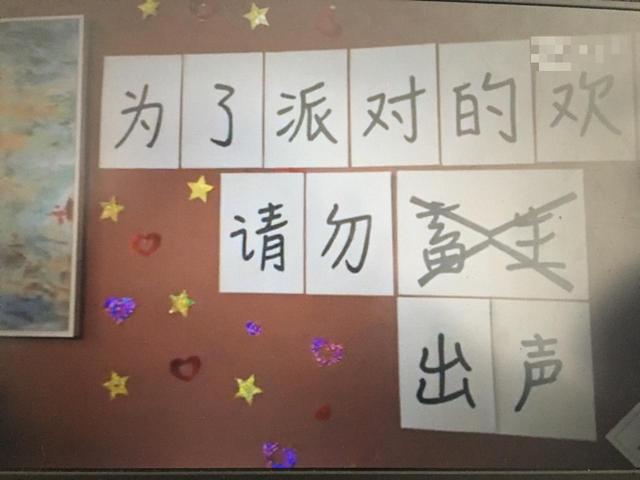 为了派对的欢
请勿畜生
出声